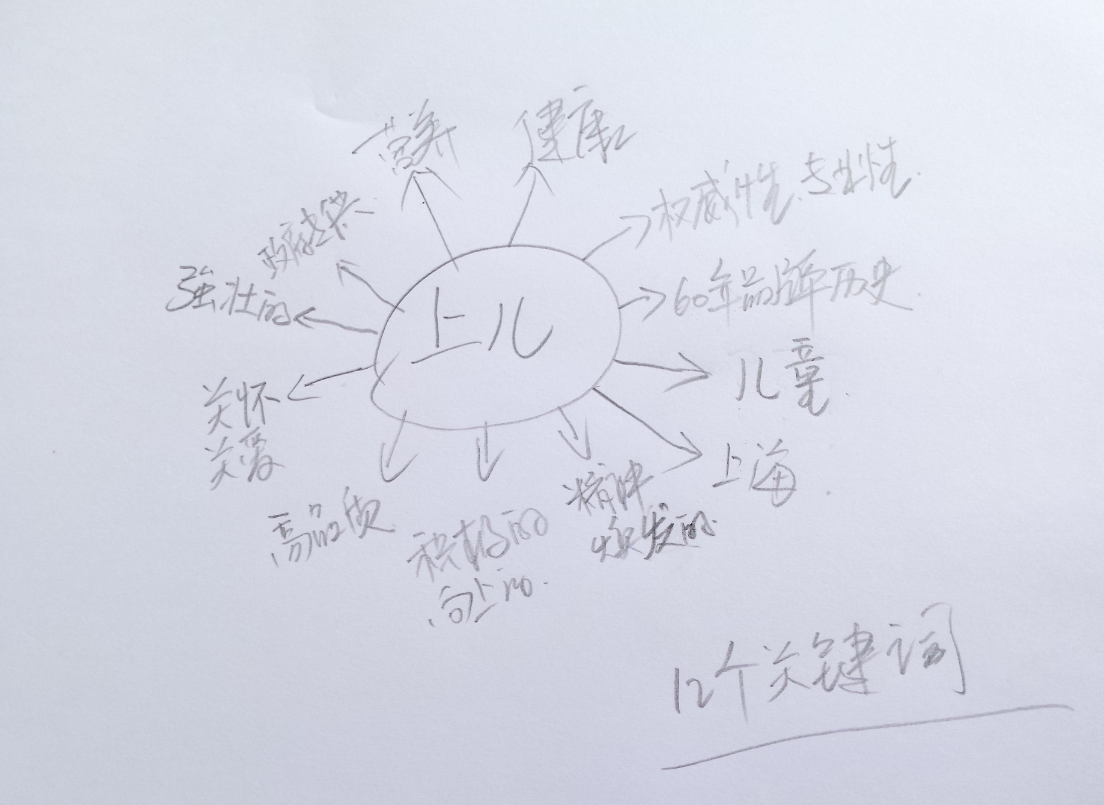 营养
健康
权威性、专业性
政府
强壮的
上儿
60年品牌历史
儿童
关怀
关爱
上海
高品质
积极的
向上的
精神
焕发的
12个关键词